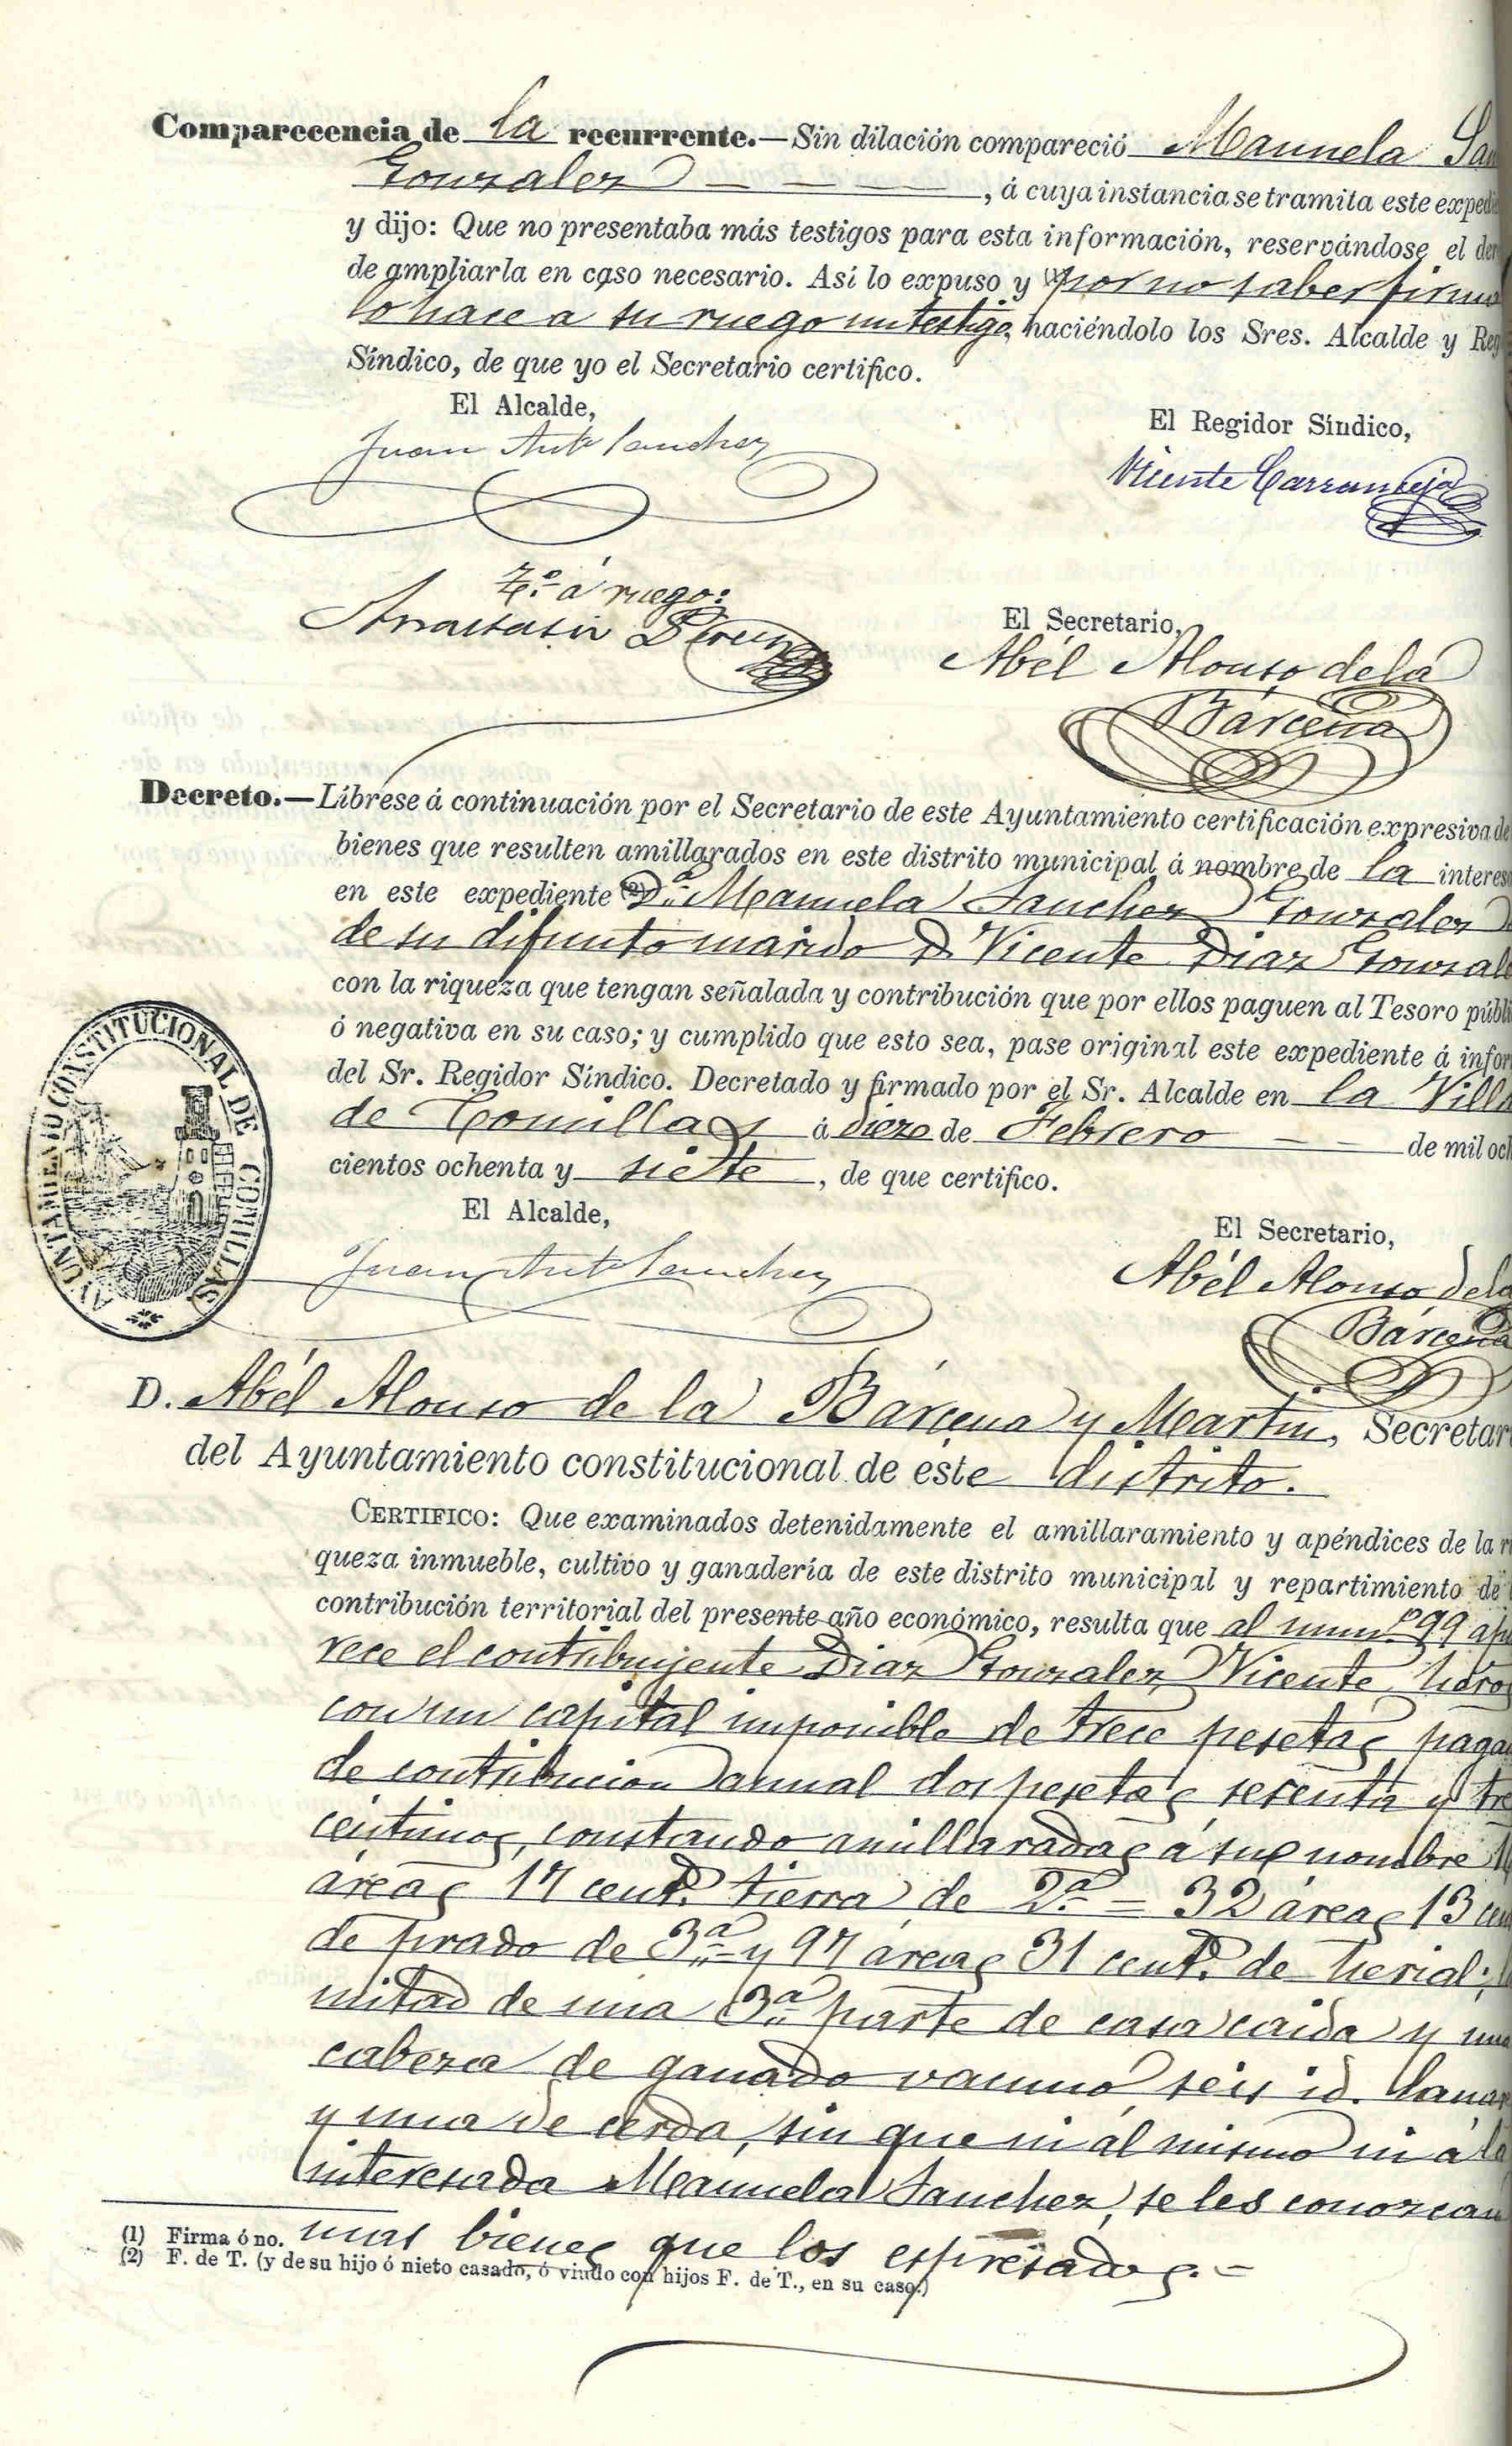 Comparecencia de la recurrente.—Sin dilación compareció Manuela
Gonzalez — — —, á cuya instancia se tramita este
y dijo: Que no presentaba más testigos para esta información, reservándose el
de ampliarla en caso necesario. Así lo expuso y (1) por no saber
lo hace a su ruego un testigo, haciéndolo los Sres. Alcalde y
Síndico, de que yo el Secretario certifico.
El Alcalde,
El Regidor Síndico,
Juan Antº Sanchez
Vicente Carranceja
Tº á ruego:
Anastasio
El Secretario,
Abél Alonso de la
Bárcena
Decreto.—Líbrese á continuación por el Secretario de este Ayuntamiento certificación expresiva
bienes que resulten amillarados en este distrito municipal á nombre de la
en este expediente (2) Dª Manuela Sanchez Gonzalez
de su difunto marido D. Vicente Diaz
con la riqueza que tengan señalada y contribución que por ellos paguen al Tesoro
ó negativa en su caso; y cumplido que esto sea, pase original este expediente á
del Sr. Regidor Síndico. Decretado y firmado por el Sr. Alcalde en la Villa
de Comillas á diez de Febrero — — de mil
cientos ochenta y siete, de que certifico.
AYUNTAMIENTO CONSTITUCIONAL DE COMILLAS
El Alcalde,
El Secretario,
Juan Antº Sanchez
Abél Alonso de la
Bárcena
D. Abél Alonso de la Bárcena y Martin,
del Ayuntamiento constitucional de este distrito.
CERTIFICO: Que examinados detenidamente el amillaramiento y apéndices de la
queza inmueble, cultivo y ganadería de este distrito municipal y repartimiento de
contribución territorial del presente año económico, resulta que al numº 99
rece el contribuyente Diaz Gonzalez Vicente
con un capital imponible de trece pesetas
de contribucion anual dos pesetas sesenta y
céntimos, constando amillaradas á su nombre
áreas 17 centº tierra de 2ª = 32 áreas 13
de prado de 3ª y 97 áreas 31 centº de herial;
mitad de una 3ª parte de casa caida y una
cabeza de ganado vacuno, seis id. lanar
y una de cerda, sin que ni al mismo ni á la
interesada Manuela Sanchez, se les conozcan
mas bienes que los espresados. =
(1) Firma ó no.
(2) F. de T. (y de su hijo ó nieto casado, ó viudo con hijos F. de T., en su caso.)